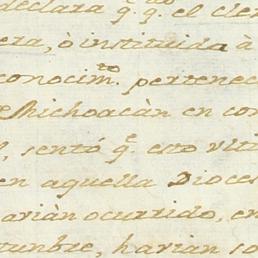 declara q.e q.e el cler
era, ò instituida à
conocim.to pertenec
Michoacàn en con
l, sentó q.e esto ulti
en aquella Dioces
avian ocurrido, en
tumbre, harian so